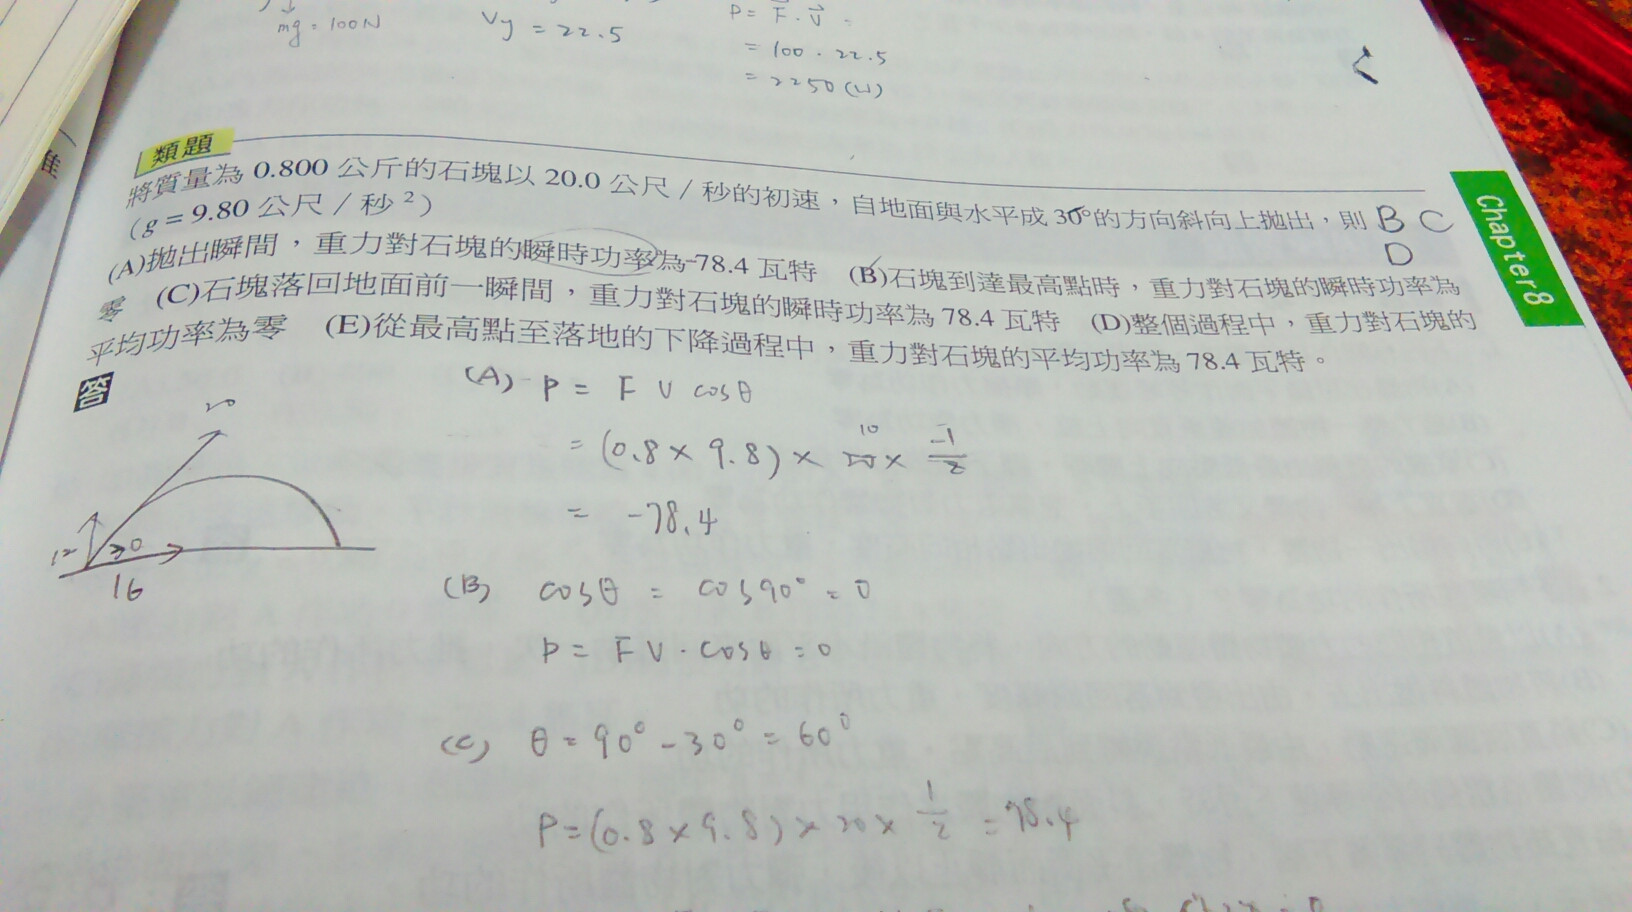 mg = 100N
Vy = 22.5
P = F · V
= 100 · 22.5
= 2250 (W)
準
類題
將質量為 0.800 公斤的石塊以 20.0 公尺/秒的初速，自地面與水平成 30°的方向斜向上拋出，則 B C
（g = 9.80 公尺/秒²） D
(A)拋出瞬間，重力對石塊的瞬時功率為-78.4 瓦特 (B)石塊到達最高點時，重力對石塊的瞬時功率為
零 (C)石塊落回地面前一瞬間，重力對石塊的瞬時功率為 78.4 瓦特 (D)整個過程中，重力對石塊的
平均功率為零 (E)從最高點至落地的下降過程中，重力對石塊的平均功率為 78.4 瓦特。
Chapter 8
答
20
12
30
16
(A) P = F V cosθ
= (0.8 × 9.8) × 20 × -1/2
10
= -78.4
(B) cosθ = cos90° = 0
P = F V · cosθ = 0
(C) θ = 90° - 30° = 60°
P = (0.8 × 9.8) × 20 × 1/2 = 78.4